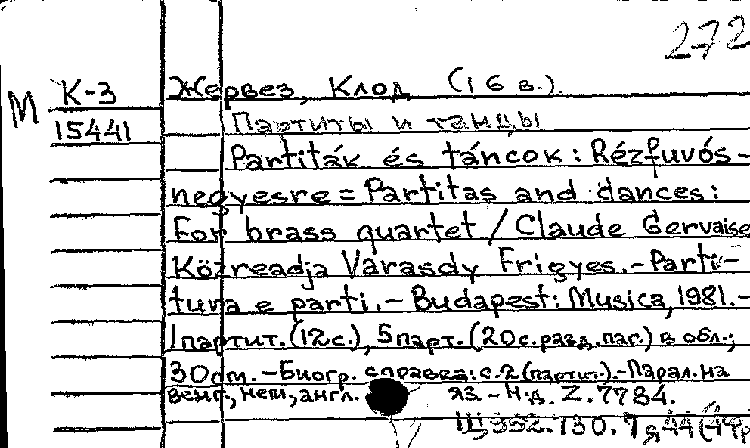 272
М К-3 Жервез, Клод (16 в.).
15441 Партиты и танцы
Partiták és táncok: Rézfuvós-
negyesre = Partitas and dances:
For brass quartet / Claude Gervaise
Közreadja Varasdy Frigyes. - Parti-
tura e parti. - Budapest: Musica, 1981. -
1 партит. (12 с.), 5 парт. (20 с. разд. паг.) в обл.;
30 cm. - Биогр. справка: с. 2 (партит.). - Парал. на
венг., нем., англ. яз. - Н.д. Z. 7784.
Щ 952.130.7